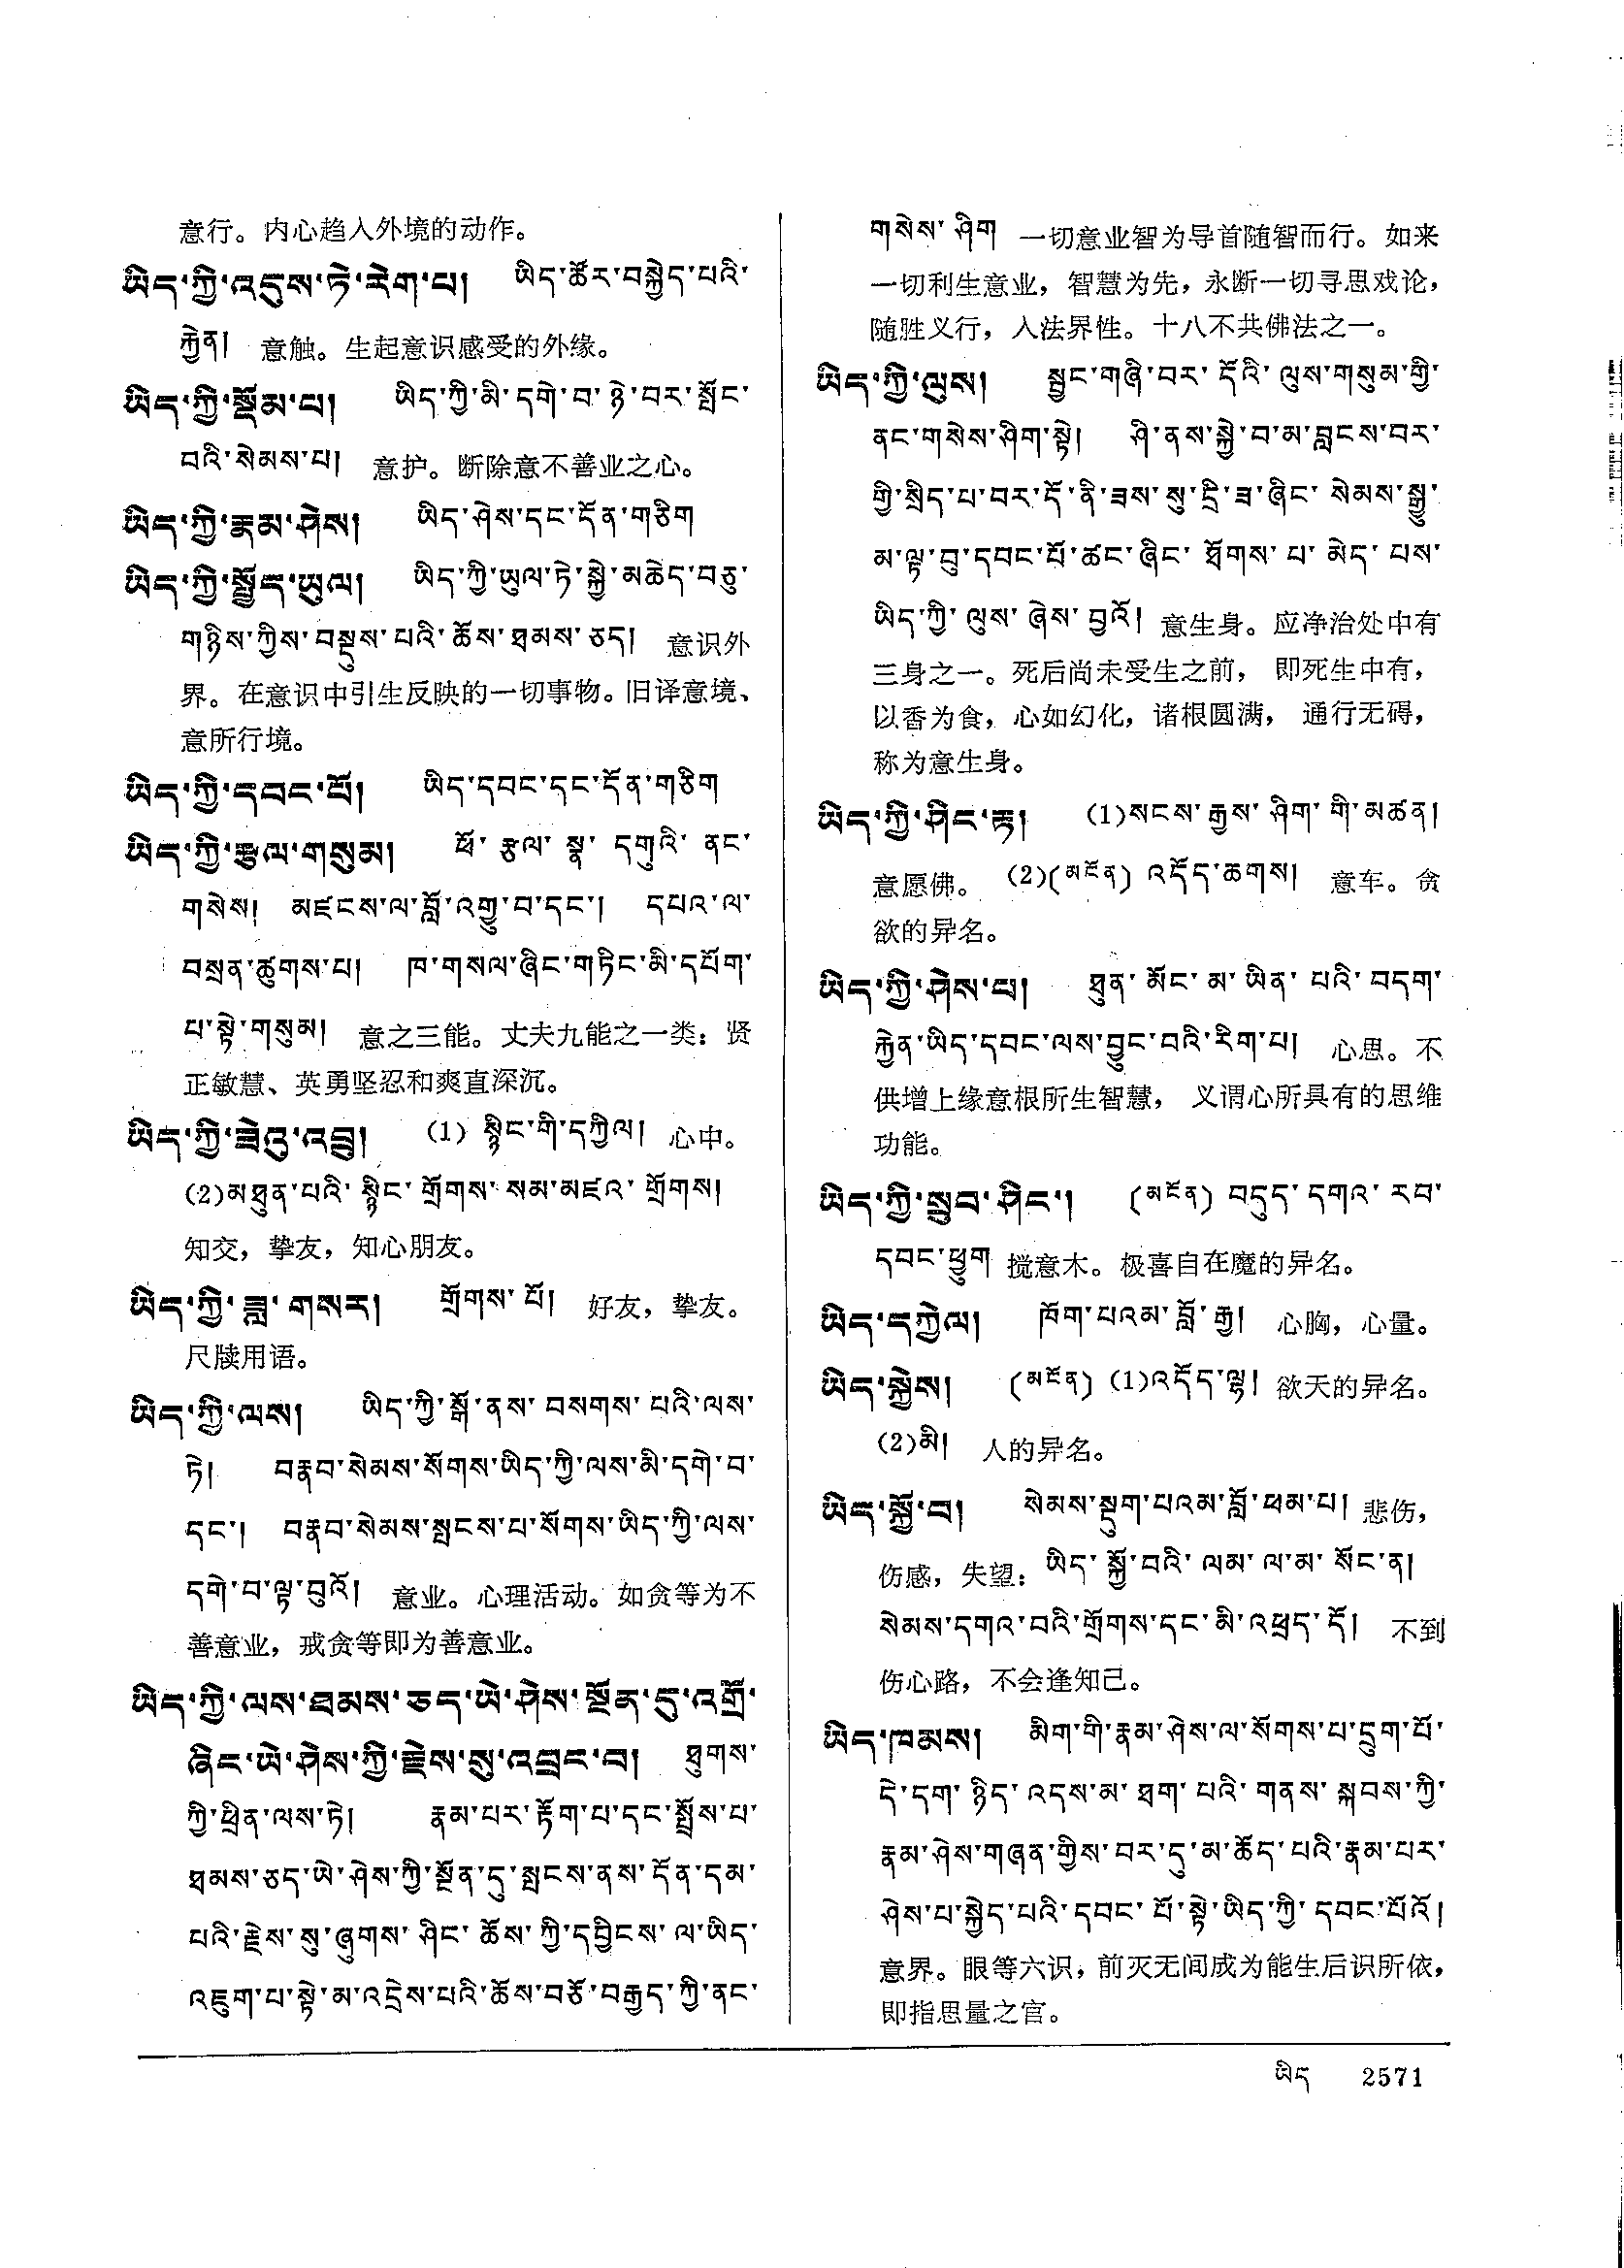 意行。内心趋入外境的动作。
ཡིད་ཀྱི་འདུས་ཏེ་རེག་པ། ཡིད་ཚོར་བསྐྱེད་པའི་
རྐྱེན། 意触。生起意识感受的外缘。
ཡིད་ཀྱི་སྡོམ་པ། ཡིད་ཀྱི་མི་དགེ་བ་ཉེ་བར་སྤོང་
བའི་སེམས་པ། 意护。断除意不善业之心。
ཡིད་ཀྱི་རྣམ་ཤེས། ཡིད་ཤེས་དང་དོན་གཅིག
ཡིད་ཀྱི་སྤྱོད་ཡུལ། ཡིད་ཀྱི་ཡུལ་ཏེ་སྐྱེ་མཆེད་བཅུ་
གཉིས་ཀྱིས་བསྡུས་པའི་ཆོས་ཐམས་ཅད། 意识外
界。在意识中引生反映的一切事物。旧译意境、
意所行境。
ཡིད་ཀྱི་དབང་པོ། ཡིད་དབང་དང་དོན་གཅིག
ཡིད་ཀྱི་རྩལ་གསུམ། ཕོ་རྩལ་སྣ་དགུའི་ནང་
གསེས། མཛངས་ལ་བློ་འགྱུ་བ་དང་། དཔའ་ལ་
བསྲན་ཚུགས་པ། ཁ་གསལ་ཞིང་གཏིང་མི་དཔོག་
པ་སྟེ་གསུམ། 意之三能。丈夫九能之一类：贤
正敏慧、英勇坚忍和爽直深沉。
ཡིད་ཀྱི་ཟེའུ་འབྲུ། (1) སྙིང་གི་དཀྱིལ། 心中。
(2)མཐུན་པའི་སྙིང་གྲོགས་སམ་མཛའ་གྲོགས།
知交，挚友，知心朋友。
ཡིད་ཀྱི་ཟླ་གསར། གྲོགས་པོ། 好友，挚友。
尺牍用语。
ཡིད་ཀྱི་ལས། ཡིད་ཀྱི་སྒོ་ནས་བསགས་པའི་ལས་
ཏེ། བརྣབ་སེམས་སོགས་ཡིད་ཀྱི་ལས་མི་དགེ་བ་
དང་། བརྣབ་སེམས་སྤངས་པ་སོགས་ཡིད་ཀྱི་ལས་
དགེ་བ་ལྟ་བུའོ། 意业。心理活动。如贪等为不
善意业，戒贪等即为善意业。
ཡིད་ཀྱི་ལས་ཐམས་ཅད་ཡེ་ཤེས་སྔོན་དུ་འགྲོ་
ཞིང་ཡེ་ཤེས་ཀྱི་རྗེས་སུ་འབྲང་བ། ཐུགས་
ཀྱི་ཕྲིན་ལས་ཏེ། རྣམ་པར་རྟོག་པ་དང་སྤྲོས་པ་
ཐམས་ཅད་ཡེ་ཤེས་ཀྱི་སྔོན་དུ་སྤངས་ནས་དོན་དམ་
པའི་རྗེས་སུ་ཞུགས་ཤིང་ཆོས་ཀྱི་དབྱིངས་ལ་ཡིད་
འཇུག་པ་སྟེ་མ་འདྲེས་པའི་ཆོས་བཅོ་བརྒྱད་ཀྱི་ནང་
གསེས་ཤིག 一切意业智为导首随智而行。如来
一切利生意业，智慧为先，永断一切寻思戏论，
随胜义行，入法界性。十八不共佛法之一。
ཡིད་ཀྱི་ལུས། སྦྱང་གཞི་བར་དོའི་ལུས་གསུམ་གྱི་
ནང་གསེས་ཤིག་སྟེ། ཤི་ནས་སྐྱེ་བ་མ་བླངས་བར་
གྱི་སྲིད་པ་བར་དོ་ནི་ཟས་སུ་དྲི་ཟ་ཞིང་སེམས་སྒྱུ་
མ་ལྟ་བུ་དབང་པོ་ཚང་ཞིང་ཐོགས་པ་མེད་པས་
ཡིད་ཀྱི་ལུས་ཞེས་བྱའོ། 意生身。应净治处中有
三身之一。死后尚未受生之前， 即死生中有，
以香为食，心如幻化，诸根圆满， 通行无碍，
称为意生身。
ཡིད་ཀྱི་ཤིང་རྟ། (1)སངས་རྒྱས་ཤིག་གི་མཚན།
意愿佛。 (2)(མངོན) འདོད་ཆགས། 意车。贪
欲的异名。
ཡིད་ཀྱི་ཤེས་པ། ཐུན་མོང་མ་ཡིན་པའི་བདག་
རྐྱེན་ཡིད་དབང་ལས་བྱུང་བའི་རིག་པ། 心思。不
供增上缘意根所生智慧， 义谓心所具有的思维
功能。
ཡིད་ཀྱི་སྲུབ་ཤིང་། (མངོན) བདུད་དགའ་རབ་
དབང་ཕྱུག 搅意木。极喜自在魔的异名。
ཡིད་དཀྱེལ། ཁོག་པའམ་བློ་རྒྱ། 心胸，心量。
ཡིད་སྐྱེས། (མངོན) (1)འདོད་ལྷ། 欲天的异名。
(2)མི། 人的异名。
ཡིད་སྐྱོ་བ། སེམས་སྡུག་པའམ་བློ་ཕམ་པ། 悲伤，
伤感，失望：ཡིད་སྐྱོ་བའི་ལམ་ལ་མ་སོང་ན།
སེམས་དགའ་བའི་གྲོགས་དང་མི་འཕྲད་དོ། 不到
伤心路，不会逢知己。
ཡིད་ཁམས། མིག་གི་རྣམ་ཤེས་ལ་སོགས་པ་དྲུག་པོ་
དེ་དག་ཉིད་འདས་མ་ཐག་པའི་གནས་སྐབས་ཀྱི་
རྣམ་ཤེས་གཞན་གྱིས་བར་དུ་མ་ཆོད་པའི་རྣམ་པར་
ཤེས་པ་སྐྱེད་པའི་དབང་པོ་སྟེ་ཡིད་ཀྱི་དབང་པོའོ།
意界。眼等六识，前灭无间成为能生后识所依，
即指思量之官。
ཡིད 2571